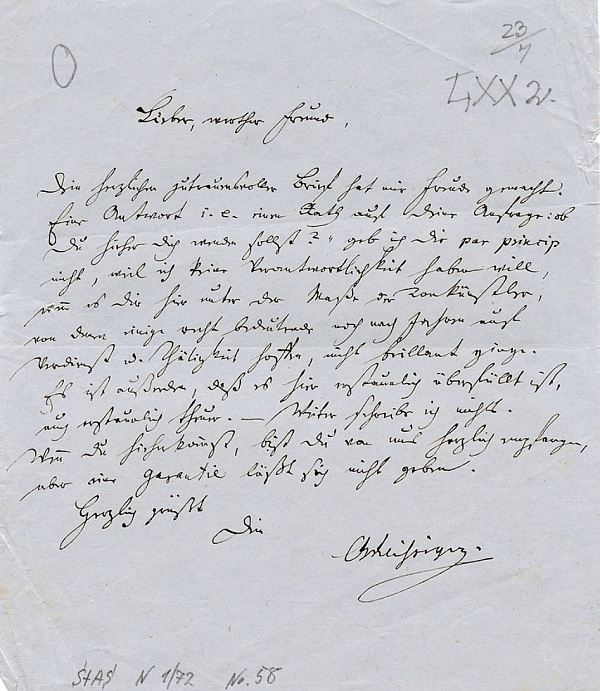 23/7
LXX 2.
Lieber, werther Freund,
Dein herzlicher zutrauensvoller Brief hat mir Freude gemacht.
Eine Antwort i. e. einen Rath auf Deine Anfrage: ob
Du hieher Dich wenden sollst?" geb ich Dir par princip
nicht, weil ich keine Verantwortlichkeit haben will,
wenn es Dir hier unter der Masse der Tonkünstler,
von denen einige recht bedeutende noch nach Jahren auf
Verdienst u. Thätigkeit hoffen, nicht brillant ginge.
Es ist außerdem, daß es hier erstaunlich überfüllt ist,
auch erstaunlich theuer. — Weiter schreibe ich nichts.
Wenn Du hieherkömst, bist Du von uns herzlich empfangen,
aber eine Garantie läßt sich nicht geben.
Herzlich grüßt
Dein
StAS N 1/72 No. 58